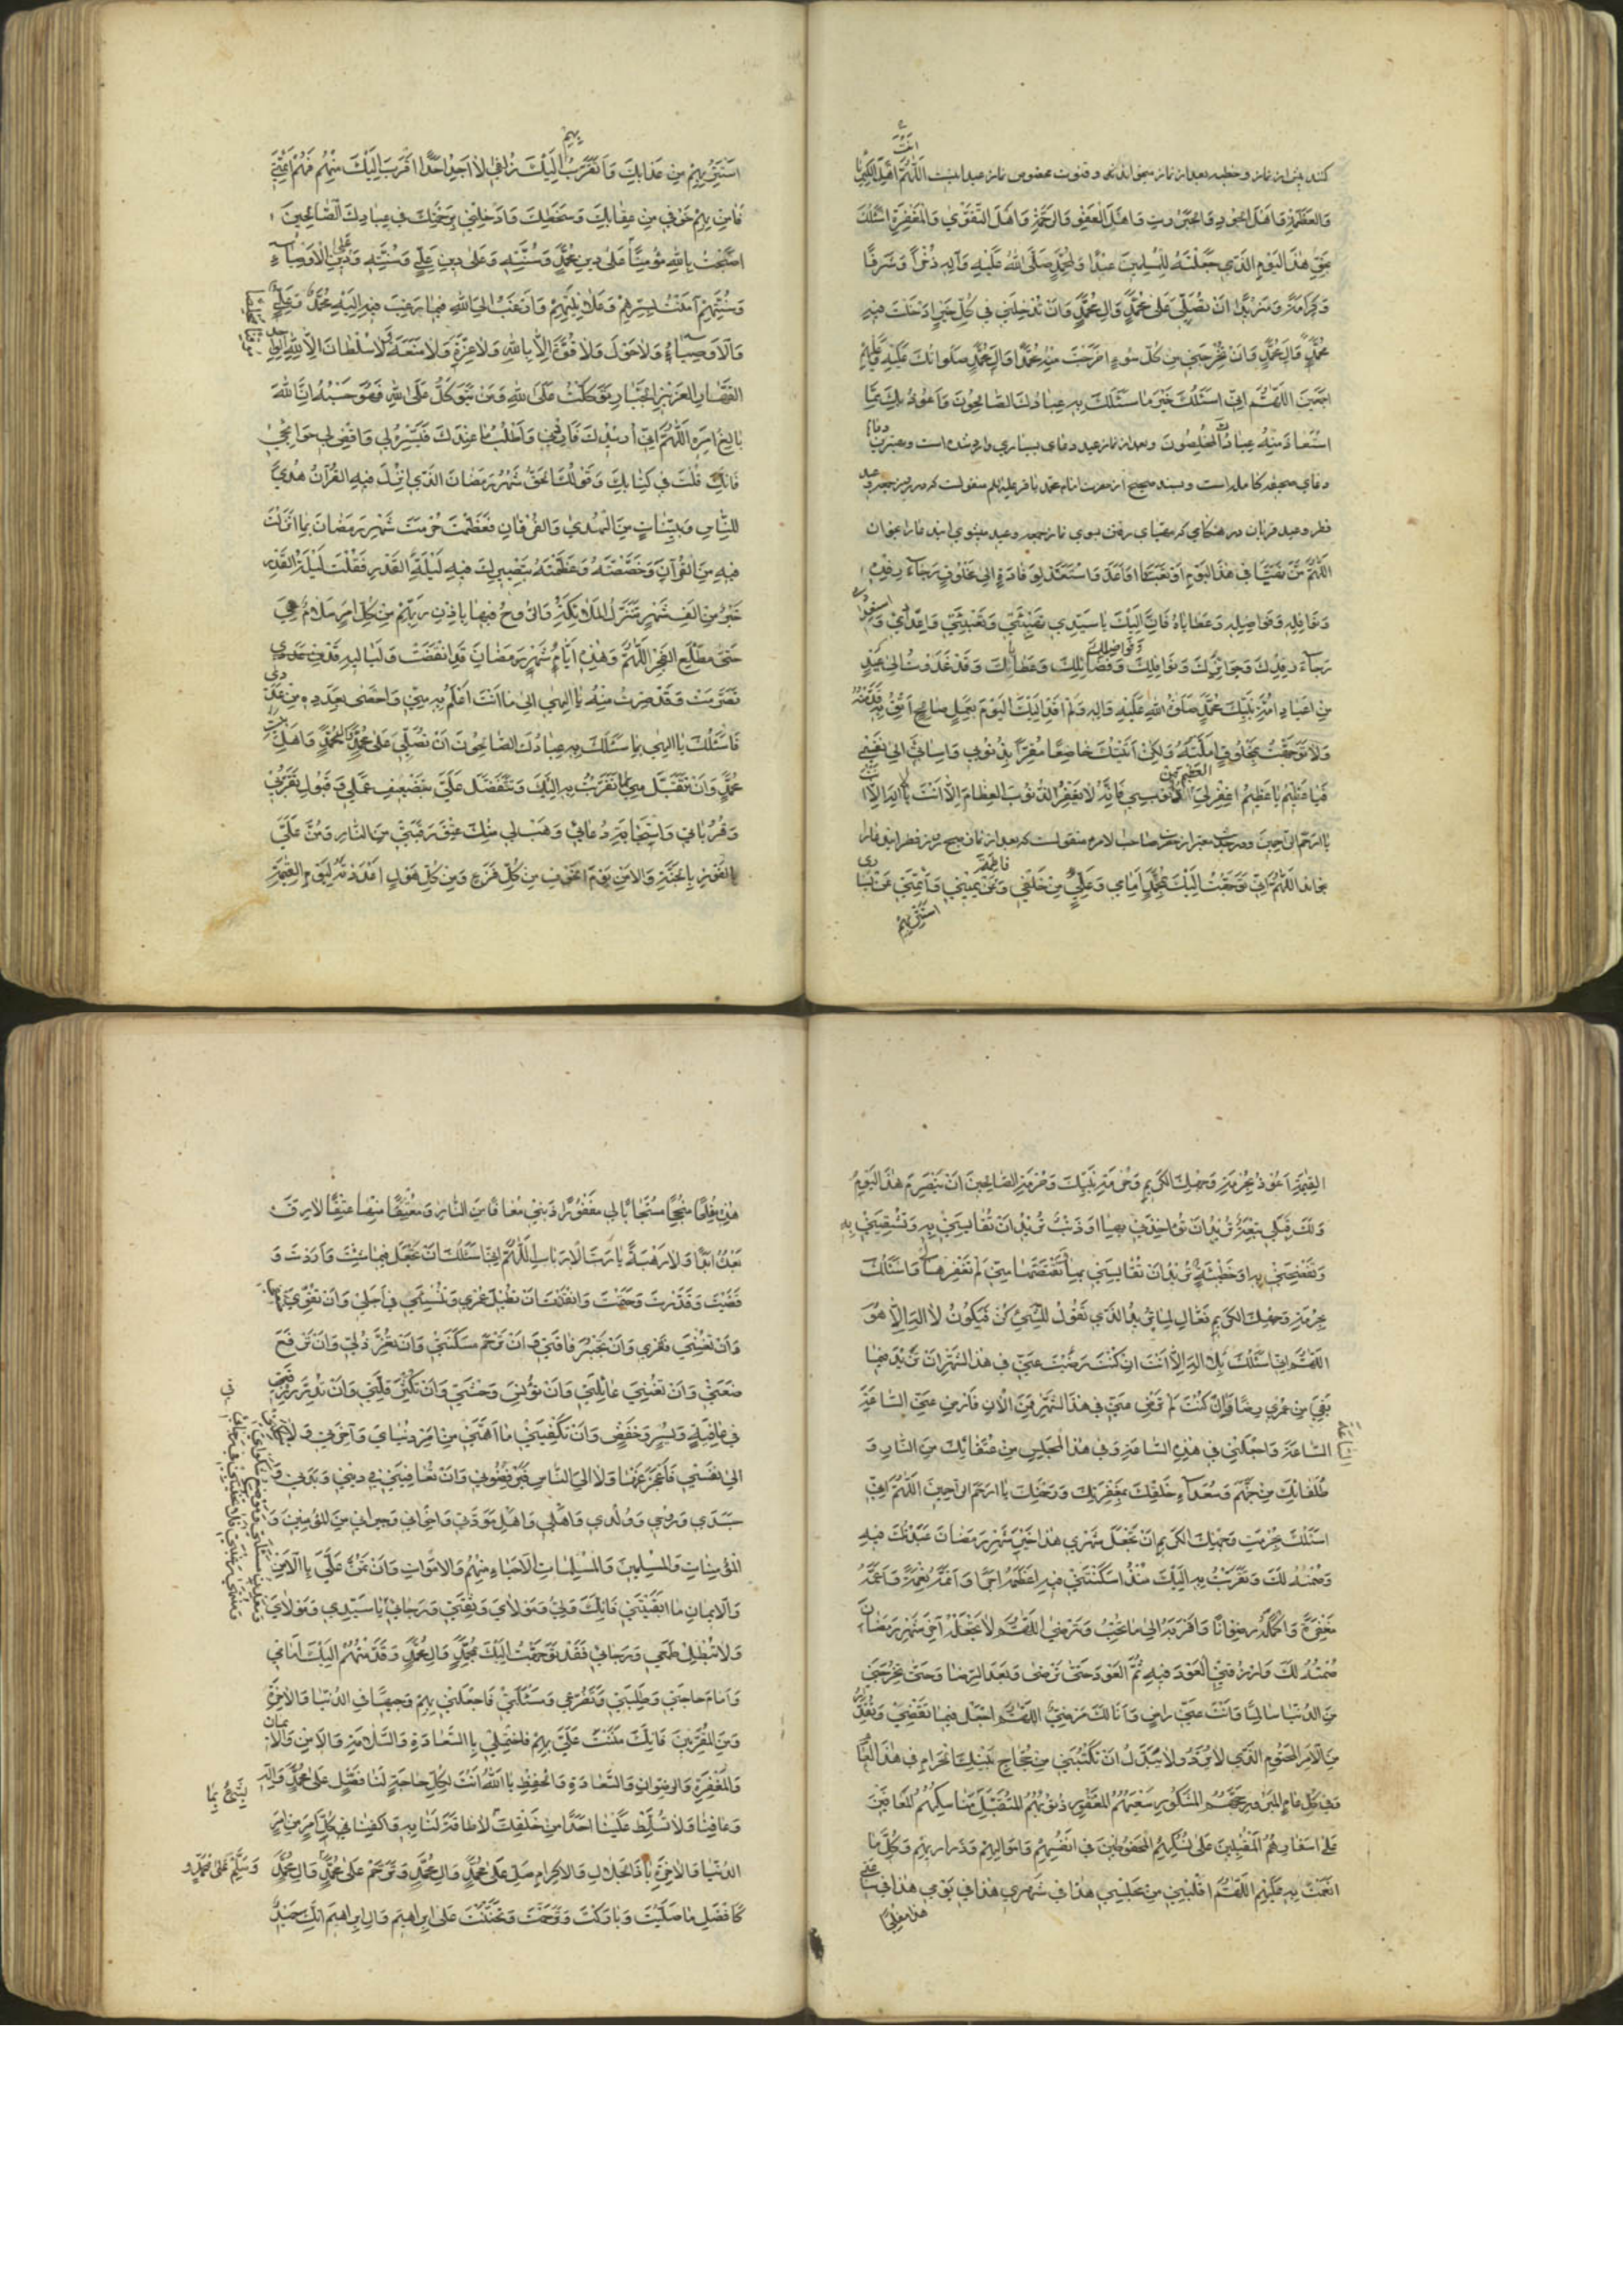 كنند پیش از نماز و خطبه بعد از نماز میخوانند و قنوت مخصوص نماز عید اینست اَللّهُمَّ اَهْلَ الْكِبْرِيَاءِ
وَالْعَظَمَةِ وَاَهْلَ الْجُودِ وَالْجَبَرُوتِ وَاَهْلَ الْعَفْوِ وَالرَّحْمَةِ وَاَهْلَ التَّقْوٰى وَالْمَغْفِرَةِ اَسْئَلُكَ
بِحَقِّ هٰذَا الْيَوْمِ الَّذِي جَعَلْتَهُ لِلْمُسْلِمِينَ عِيدًا وَلِمُحَمَّدٍ صَلَّى اللهُ عَلَيْهِ وَآلِهِ ذُخْرًا وَشَرَفًا
وَكَرَامَةً وَمَزِيدًا اَنْ تُصَلِّيَ عَلٰى مُحَمَّدٍ وَآلِ مُحَمَّدٍ وَاَنْ تُدْخِلَنِي فِي كُلِّ خَيْرٍ اَدْخَلْتَ فِيهِ
مُحَمَّدًا وَآلَ مُحَمَّدٍ وَاَنْ تُخْرِجَنِي مِنْ كُلِّ سُوءٍ اَخْرَجْتَ مِنْهُ مُحَمَّدًا وَآلَ مُحَمَّدٍ صَلَوَاتُكَ عَلَيْهِ وَعَلَيْهِمْ
اَجْمَعِينَ اَللّٰهُمَّ اِنِّي اَسْئَلُكَ خَيْرَ مَا سَئَلَكَ بِهِ عِبَادُكَ الصَّالِحُونَ وَاَعُوذُ بِكَ مِمَّا
اسْتَعَاذَ مِنْهُ عِبَادُكَ الْمُخْلِصُونَ وبعد از نماز عید دعای بسیاری وارد شده است وبهترین
دعای صحیفه کامله است وبسند صحیح از حضرت امام محمد باقر علیه السلم منقولست که در روز جمعه و عید
فطر و عید قربان در هنگامی که مهیای رفتن بسوی نماز جمعه وعید میشوی این دعا را بخوان
اَللّٰهُمَّ مَنْ تَهَيَّأَ فِي هٰذَا الْيَوْمِ اَوْ تَعَبَّأَ اَوْ اَعَدَّ وَاسْتَعَدَّ لِوِفَادَةٍ اِلٰى مَخْلُوقٍ رَجَاءَ رِفْدِهِ
وَنَوَافِلِهِ وَفَوَاضِلِهِ وَعَطَايَاهُ فَاِنَّ اِلَيْكَ يَا سَيِّدِي تَهْيِئَتِي وَتَعْبِئَتِي وَاِعْدَادِي وَاسْتِعْدَادِي
رَجَاءَ رِفْدِكَ وَجَوَائِزِكَ وَنَوَافِلِكَ وَفَوَاضِلِكَ وَفَضَائِلِكَ وَعَطَايَاكَ وَقَدْ غَدَوْتُ اِلٰى عِيدٍ
مِنْ اَعْيَادِ اُمَّةِ نَبِيِّكَ مُحَمَّدٍ صَلَوَاتُ اللهِ عَلَيْهِ وَآلِهِ وَلَمْ اَفِدْ اِلَيْكَ الْيَوْمَ بِعَمَلٍ صَالِحٍ اَثِقُ بِهِ قَدَّمْتُهُ
وَلَا تَوَجَّهْتُ بِمَخْلُوقٍ اَمَّلْتُهُ وَلٰكِنْ اَتَيْتُكَ خَاضِعًا مُقِرًّا بِذُنُوبِي وَاِسَائَتِي اِلٰى نَفْسِي
فَيَا عَظِيمُ يَا عَظِيمُ اغْفِرْ لِيَ الْعَظِيمَ مِنْ ذُنُوبِي فَاِنَّهُ لَا يَغْفِرُ الذُّنُوبَ الْعِظَامَ اِلَّا اَنْتَ يَا لَا اِلٰهَ اِلَّا اَنْتَ
يَا اَرْحَمَ الرَّاحِمِينَ ودر حدیث معتبر از حضرت صاحب الامر منقولست که بعد از نماز صبح روز فطر این دعا را
بخواند اَللّٰهُمَّ اِنِّي تَوَجَّهْتُ اِلَيْكَ بِمُحَمَّدٍ اَمَامِي وَعَلِيٍّ مِنْ خَلْفِي وَعَنْ يَمِينِي وَاَئِمَّتِي عَنْ يَسَارِي
اَسْتَتِرُ بِهِمْ
اَسْتَتِرُ بِهِمْ مِنْ عَذَابِكَ وَاَتَقَرَّبُ اِلَيْكَ زُلْفٰى لَا اَجِدُ اَحَدًا اَقْرَبَ اِلَيْكَ مِنْهُمْ فَهُمْ اَئِمَّتِي
فَآمِنْ بِهِمْ خَوْفِي مِنْ عِقَابِكَ وَسَخَطِكَ وَاَدْخِلْنِي بِرَحْمَتِكَ فِي عِبَادِكَ الصَّالِحِينَ
اَصْبَحْتُ بِاللهِ مُؤْمِنًا عَلٰى دِينِ مُحَمَّدٍ وَسُنَّتِهِ وَعَلٰى دِينِ عَلِيٍّ وَسُنَّتِهِ وَعَلٰى دِينِ الْاَوْصِيَاءِ
وَسُنَّتِهِمْ آمَنْتُ بِسِرِّهِمْ وَعَلَانِيَتِهِمْ وَاَرْغَبُ اِلَى اللهِ فِيمَا رَغِبَ فِيهِ اِلَيْهِ مُحَمَّدٌ وَعَلِيٌّ
وَالْاَوْصِيَاءُ وَلَا حَوْلَ وَلَا قُوَّةَ اِلَّا بِاللهِ وَلَا عِزَّةَ وَلَا مَنَعَةَ وَلَا سُلْطَانَ اِلَّا لِلّٰهِ الْوَاحِدِ
الْقَهَّارِ الْعَزِيزِ الْجَبَّارِ تَوَكَّلْتُ عَلَى اللهِ وَمَنْ يَتَوَكَّلْ عَلَى اللهِ فَهُوَ حَسْبُهُ اِنَّ اللهَ
بَالِغُ اَمْرِهِ اَللّٰهُمَّ اِنِّي اُرِيدُكَ فَاَرِدْنِي وَاَطْلُبُ مَا عِنْدَكَ فَيَسِّرْهُ لِي وَاقْضِ لِي حَوَائِجِي
فَاِنَّكَ قُلْتَ فِي كِتَابِكَ وَقَوْلُكَ الْحَقُّ شَهْرُ رَمَضَانَ الَّذِي اُنْزِلَ فِيهِ الْقُرْآنُ هُدًى
لِلنَّاسِ وَبَيِّنَاتٍ مِنَ الْهُدٰى وَالْفُرْقَانِ فَعَظَّمْتَ حُرْمَةَ شَهْرِ رَمَضَانَ بِمَا اَنْزَلْتَ
فِيهِ مِنَ الْقُرْآنِ وَخَصَّصْتَهُ وَعَظَّمْتَهُ بِتَصْيِيرِكَ فِيهِ لَيْلَةَ الْقَدْرِ فَقُلْتَ لَيْلَةُ الْقَدْرِ
خَيْرٌ مِنْ اَلْفِ شَهْرٍ تَنَزَّلُ الْمَلَائِكَةُ وَالرُّوحُ فِيهَا بِاِذْنِ رَبِّهِمْ مِنْ كُلِّ اَمْرٍ سَلَامٌ هِيَ
حَتّٰى مَطْلَعِ الْفَجْرِ اَللّٰهُمَّ وَهٰذِهِ اَيَّامُ شَهْرِ رَمَضَانَ قَدِ انْقَضَتْ وَلَيَالِيهِ قَدْ
تَصَرَّمَتْ وَقَدْ صِرْتُ مِنْهُ يَا اِلٰهِي اِلٰى مَا اَنْتَ اَعْلَمُ بِهِ مِنِّي وَاَحْصٰى بِعَدَدِهِ مِنْ عَدَدِي
فَاَسْئَلُكَ يَا اِلٰهِي بِمَا سَئَلَكَ بِهِ عِبَادُكَ الصَّالِحُونَ اَنْ تُصَلِّيَ عَلٰى مُحَمَّدٍ وَآلِ مُحَمَّدٍ وَاَهْلِ بَيْتِ
مُحَمَّدٍ وَاَنْ تَتَقَبَّلَ مِنِّي مَا تَقَرَّبْتُ بِهِ اِلَيْكَ وَتَتَفَضَّلَ عَلَيَّ بِتَضْعِيفِ عَمَلِي وَقَبُولِ تَقَرُّبِي
وَقُرُبَاتِي وَاسْتِجَابَةِ دُعَائِي وَهَبْ لِي مِنْكَ عِتْقَ رَقَبَتِي مِنَ النَّارِ وَمُنَّ عَلَيَّ
بِالْفَوْزِ بِالْجَنَّةِ وَالْاَمْنِ يَوْمَ الْخَوْفِ مِنْ كُلِّ فَزَعٍ وَمِنْ كُلِّ هَوْلٍ اَعْدَدْتَهُ لِيَوْمِ الْقِيٰمَةِ
الْقِيٰمَةِ اَعُوذُ بِحُرْمَةِ وَجْهِكَ الْكَرِيمِ وَحُرْمَةِ نَبِيِّكَ وَحُرْمَةِ الصَّالِحِينَ اَنْ يَنْصَرِمَ هٰذَا الْيَوْمُ
وَلَكَ قِبَلِي تَبِعَةٌ تُرِيدُ اَنْ تُؤَاخِذَنِي بِهَا اَوْ ذَنْبٌ تُرِيدُ اَنْ تُقَايِسَنِي بِهِ وَتُشْقِيَنِي بِهِ
وَتَفْضَحَنِي بِهِ اَوْ خَطِيئَةٌ تُرِيدُ اَنْ تُقَايِسَنِي بِهَا وَتَقْتَصَّهَا مِنِّي لَمْ تَغْفِرْهَا لِي وَاَسْئَلُكَ
بِحُرْمَةِ وَجْهِكَ الْكَرِيمِ الْفَعَّالِ لِمَا يُرِيدُ الَّذِي يَقُولُ لِلشَّيْءِ كُنْ فَيَكُونُ لَا اِلٰهَ اِلَّا هُوَ
اَللّٰهُمَّ اِنِّي اَسْئَلُكَ بِلَا اِلٰهَ اِلَّا اَنْتَ اِنْ كُنْتَ رَضِيتَ عَنِّي فِي هٰذَا الشَّهْرِ اَنْ تَزِيدَ فِيمَا
بَقِيَ مِنْ عُمْرِي رِضًا وَاِنْ كُنْتَ لَمْ تَرْضَ عَنِّي فِي هٰذَا الشَّهْرِ فَمِنَ الْآنِ فَارْضَ عَنِّي السَّاعَةَ
السَّاعَةَ وَاجْعَلْنِي فِي هٰذِهِ السَّاعَةِ وَفِي هٰذَا الْمَجْلِسِ مِنْ عُتَقَائِكَ مِنَ النَّارِ وَ
طُلَقَائِكَ مِنْ جَهَنَّمَ وَسُعَدَاءِ خَلْقِكَ بِمَغْفِرَتِكَ وَرَحْمَتِكَ يَا اَرْحَمَ الرَّاحِمِينَ اَللّٰهُمَّ اِنِّي
اَسْئَلُكَ بِحُرْمَةِ وَجْهِكَ الْكَرِيمِ اَنْ تَجْعَلَ شَهْرِي هٰذَا خَيْرَ شَهْرِ رَمَضَانَ عَبَدْتُكَ فِيهِ
وَصُمْتُهُ لَكَ وَتَقَرَّبْتُ بِهِ اِلَيْكَ مُنْذُ اَسْكَنْتَنِي فِيهِ اَعْظَمَهُ اَجْرًا وَاَتَمَّهُ نِعْمَةً وَاَعَمَّهُ
مَغْفِرَةً وَاَكْمَلَهُ رِضْوَانًا وَاَقْرَبَهُ اِلٰى مَا تُحِبُّ وَتَرْضٰى اَللّٰهُمَّ لَا تَجْعَلْهُ آخِرَ شَهْرِ رَمَضَانَ
صُمْتُهُ لَكَ وَارْزُقْنِي الْعَوْدَ فِيهِ ثُمَّ الْعَوْدَ حَتّٰى تَرْضٰى وَبَعْدَ الرِّضَا وَحَتّٰى تُخْرِجَنِي
مِنَ الدُّنْيَا سَالِمًا وَاَنْتَ عَنِّي رَاضٍ وَاَنَا لَكَ مَرْضِيٌّ اَللّٰهُمَّ اجْعَلْ فِيمَا تَقْضِي وَتُقَدِّرُ
مِنَ الْاَمْرِ الْمَحْتُومِ الَّذِي لَا يُرَدُّ وَلَا يُبَدَّلُ اَنْ تَكْتُبَنِي مِنْ حُجَّاجِ بَيْتِكَ الْحَرَامِ فِي هٰذَا الْعَامِ
وَفِي كُلِّ عَامٍ الْمَبْرُورِ حَجُّهُمُ الْمَشْكُورِ سَعْيُهُمُ الْمَغْفُورِ ذُنُوبُهُمُ الْمُتَقَبَّلِ مَنَاسِكُهُمُ الْمُعَافَيْنَ
عَلٰى اَسْفَارِهِمُ الْمُقْبِلِينَ عَلٰى نُسُكِهِمُ الْمَحْفُوظِينَ فِي اَنْفُسِهِمْ وَاَمْوَالِهِمْ وَذَرَارِيهِمْ وَكُلِّ مَا
اَنْعَمْتَ بِهِ عَلَيْهِمْ اَللّٰهُمَّ اقْلِبْنِي مِنْ مَجْلِسِي هٰذَا فِي شَهْرِي هٰذَا فِي يَوْمِي هٰذَا فِي سَاعَتِي
هٰذِهِ مُفْلِحًا
هٰذِهِ مُفْلِحًا مُنْجِحًا مُسْتَجَابًا لِي مَغْفُورًا ذَنْبِي مُعَافًا مِنَ النَّارِ وَمُعْتَقًا مِنْهَا عِتْقًا لَا رِقَّ
بَعْدَهُ اَبَدًا وَلَا رَهْبَةَ يَا رَبَّ الْاَرْبَابِ اَللّٰهُمَّ اِنِّي اَسْئَلُكَ اَنْ تَجْعَلَ فِيمَا شِئْتَ وَاَرَدْتَ وَ
قَضَيْتَ وَقَدَّرْتَ وَحَتَمْتَ وَاَنْفَذْتَ اَنْ تُطِيلَ عُمْرِي وَتُنْسِئَ فِي اَجَلِي وَاَنْ تُقَوِّيَ ضَعْفِي
وَاَنْ تُغْنِيَ فَقْرِي وَاَنْ تَجْبُرَ فَاقَتِي وَاَنْ تَرْحَمَ مَسْكَنَتِي وَاَنْ تُعِزَّ ذُلِّي وَاَنْ تَرْفَعَ
ضَعَتِي وَاَنْ تُغْنِيَ عَائِلَتِي وَاَنْ تُؤْنِسَ وَحْشَتِي وَاَنْ تُكْثِرَ قِلَّتِي وَاَنْ تُدِرَّ رِزْقِي
فِي عَافِيَةٍ وَيُسْرٍ وَخَفْضٍ وَاَنْ تَكْفِيَنِي مَا اَهَمَّنِي مِنْ اَمْرِ دُنْيَايَ وَآخِرَتِي وَلَا تَكِلْنِي
اِلٰى نَفْسِي فَاَعْجِزَ عَنْهَا وَلَا اِلَى النَّاسِ فَيَرْفُضُونِي وَاَنْ تُعَافِيَنِي فِي دِينِي وَبَدَنِي وَ
جَسَدِي وَرُوحِي وَوُلْدِي وَاَهْلِي وَاَهْلِ مَوَدَّتِي وَاِخْوَانِي وَجِيرَانِي مِنَ الْمُؤْمِنِينَ وَ
الْمُؤْمِنَاتِ وَالْمُسْلِمِينَ وَالْمُسْلِمَاتِ الْاَحْيَاءِ مِنْهُمْ وَالْاَمْوَاتِ وَاَنْ تَمُنَّ عَلَيَّ بِالْاَمْنِ
وَالْاِيمَانِ مَا اَبْقَيْتَنِي فَاِنَّكَ وَلِيِّي وَمَوْلَايَ وَثِقَتِي وَرَجَائِي يَا سَيِّدِي وَمَوْلَايَ
وَلَا تُبْطِلْ طَمَعِي وَرَجَائِي فَقَدْ تَوَجَّهْتُ اِلَيْكَ بِمُحَمَّدٍ وَآلِ مُحَمَّدٍ وَقَدَّمْتُهُمْ اِلَيْكَ اَمَامِي
وَاَمَامَ حَاجَتِي وَطَلِبَتِي وَتَضَرُّعِي وَمَسْئَلَتِي فَاجْعَلْنِي بِهِمْ وَجِيهًا فِي الدُّنْيَا وَالْآخِرَةِ
وَمِنَ الْمُقَرَّبِينَ فَاِنَّكَ مَنَنْتَ عَلَيَّ بِهِمْ فَاخْتِمْ لِي بِالسَّعَادَةِ وَالسَّلَامَةِ وَالْاَمْنِ وَالْاِيمَانِ
وَالْمَغْفِرَةِ وَالرِّضْوَانِ وَالسَّعَادَةِ وَالْحِفْظِ يَا اَللهُ اَنْتَ لِكُلِّ حَاجَةٍ لَنَا فَصَلِّ عَلٰى مُحَمَّدٍ وَآلِهِ
وَعَافِنَا وَلَا تُسَلِّطْ عَلَيْنَا اَحَدًا مِنْ خَلْقِكَ لَا طَاقَةَ لَنَا بِهِ وَاكْفِنَا كُلَّ اَمْرٍ مِنْ اَمْرِ
الدُّنْيَا وَالْآخِرَةِ يَا ذَا الْجَلَالِ وَالْاِكْرَامِ صَلِّ عَلٰى مُحَمَّدٍ وَآلِ مُحَمَّدٍ وَتَرَحَّمْ عَلٰى مُحَمَّدٍ وَآلِ مُحَمَّدٍ وَسَلِّمْ عَلٰى مُحَمَّدٍ وَ
كَاَفْضَلِ مَا صَلَّيْتَ وَبَارَكْتَ وَتَرَحَّمْتَ وَتَحَنَّنْتَ عَلٰى اِبْرَاهِيمَ وَآلِ اِبْرَاهِيمَ اِنَّكَ حَمِيدٌ